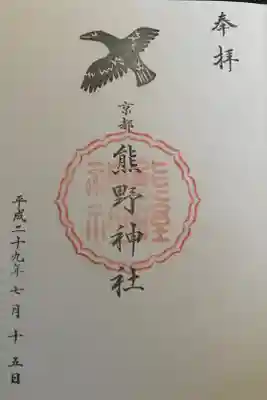 奉拝
京都
熊野神社
平成二十九年七月十五日